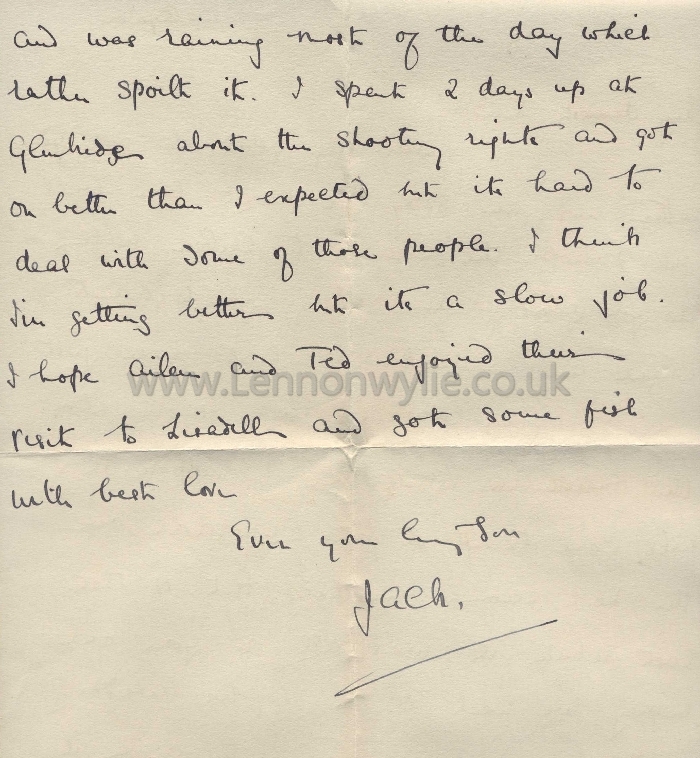 and was raining most of the day which
rather spoilt it. I spent 2 days up at
about the shooting rights and got
on better than I expected but its hard to
deal with some of those people. I think
I'm getting better but its a slow job.
I hope Aileen and Ted enjoyed their
www.Lennonwylie.co.uk
visit to Lissadell and got some fish
with best love
Ever your loving Son
Jack.